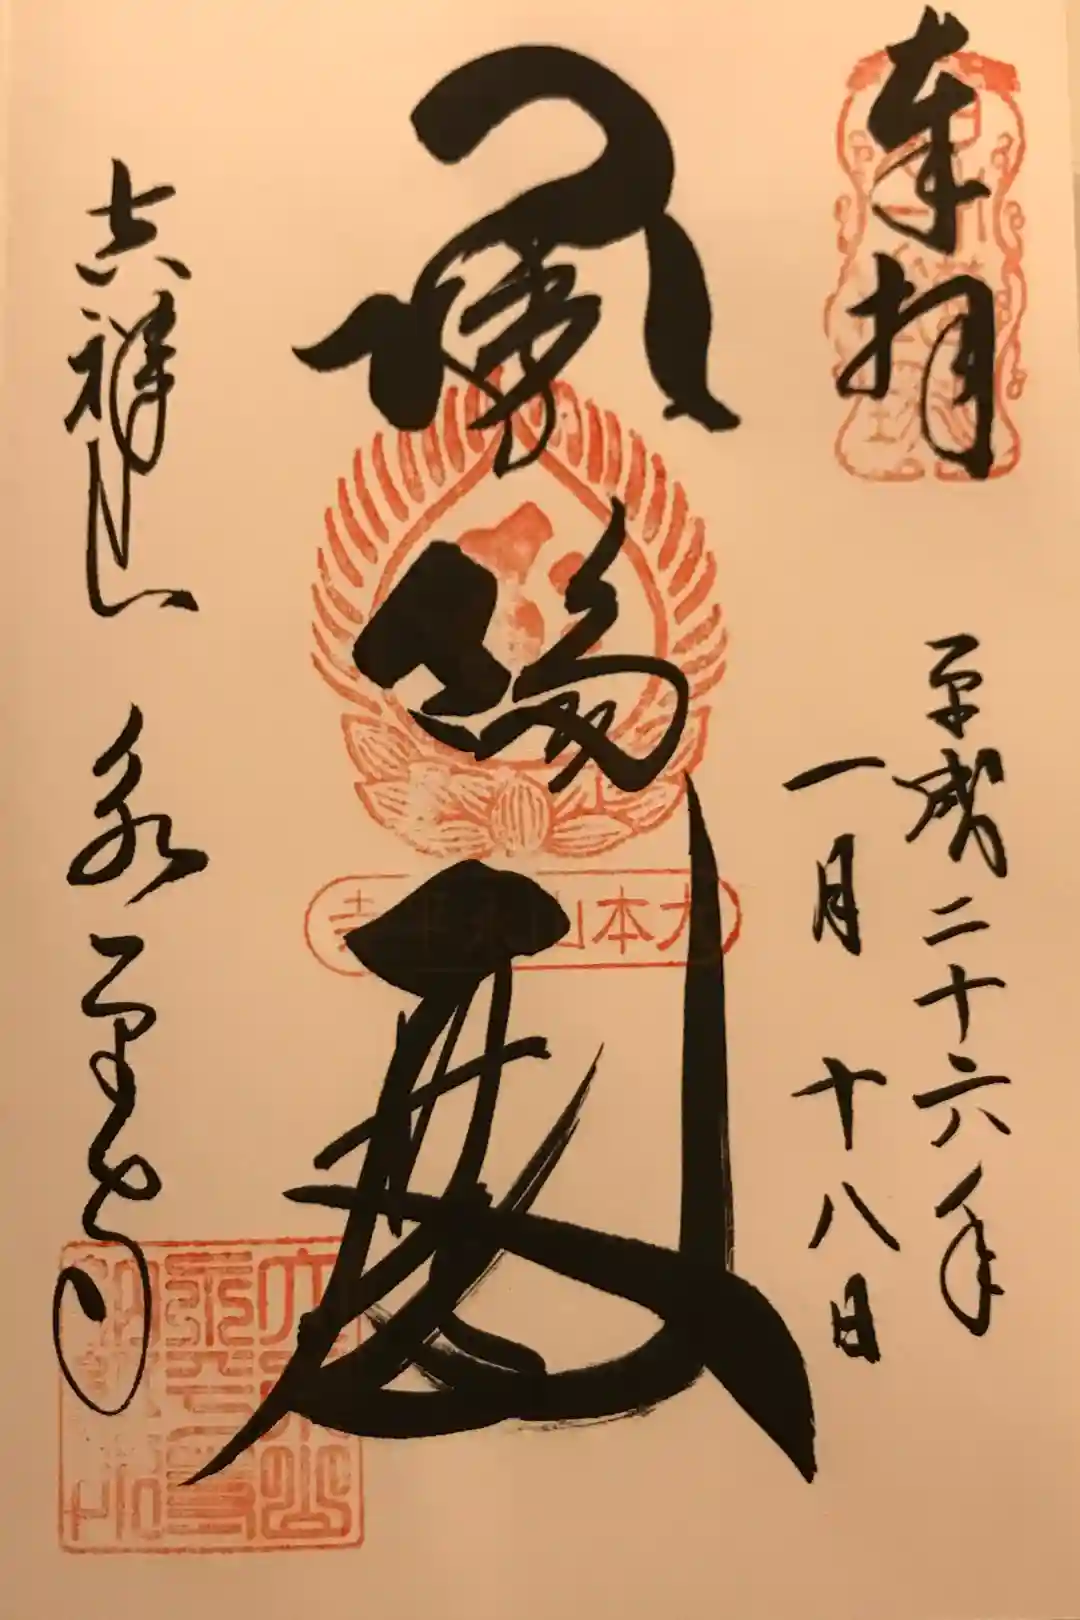 奉拝
平成二十六年
一月十八日
承陽殿
大本山永平寺
吉祥山 永平寺